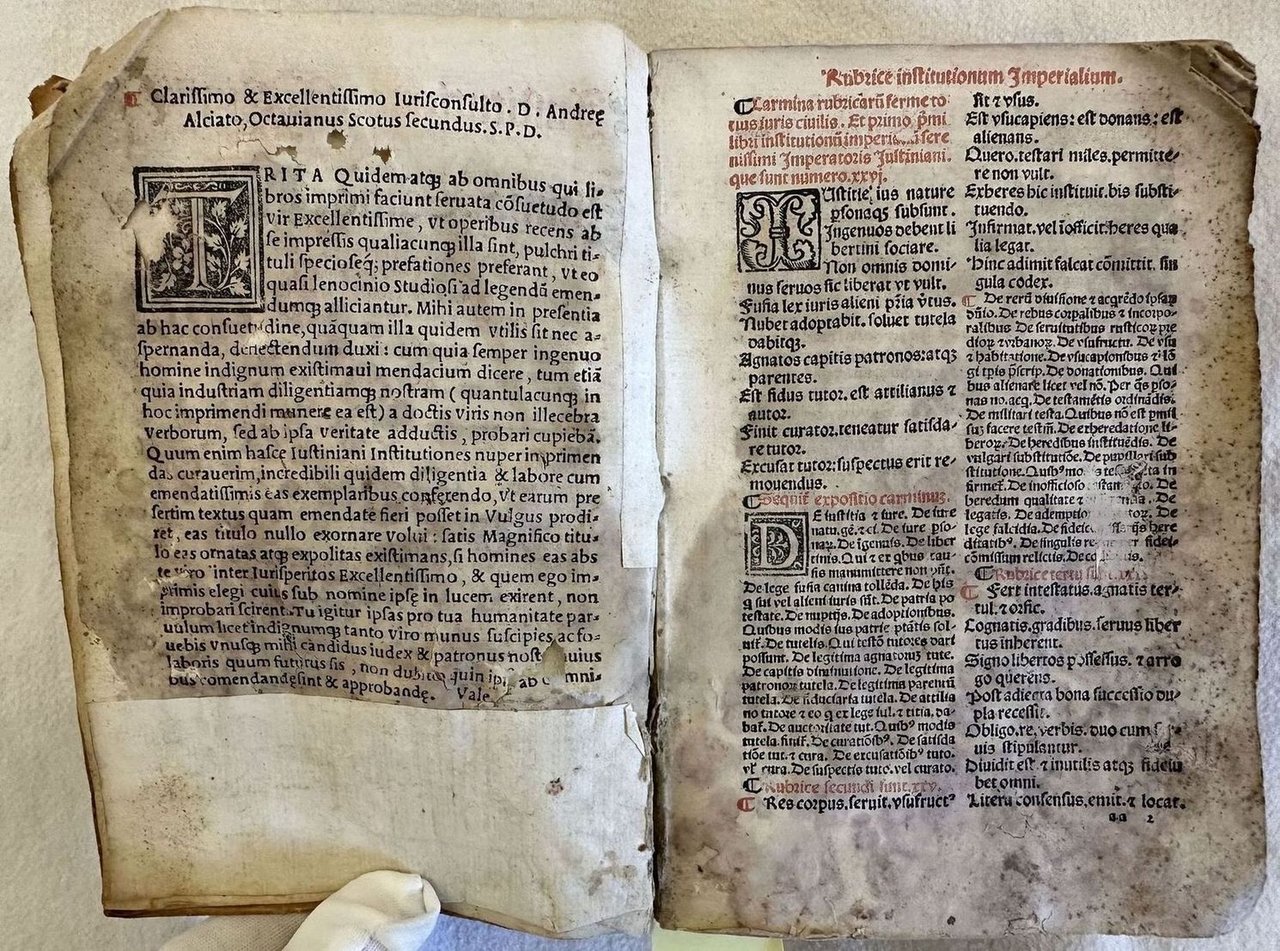 Clarissimo & Excellentissimo Iurisconsulto . D . Andreę
Alciato, Octauianus Scotus secundus. S. P. D.
TRITA Quidem atq; ab omnibus qui li-
bros imprimi faciunt seruata cōsuetudo est
vir Excellentissime, vt operibus recens ab
se impressis qualiacunq; illa sint, pulchri ti-
tuli specioseq; prefationes preferant, vt eo
quasi lenocinio Studiosi ad legendā emen-
dumq; alliciantur. Mihi autem in presentia
ab hac consuetudine, quāquam illa quidem vtilis sit nec a-
spernanda, deflectendum duxi : cum quia semper ingenuo
homine indignum existimaui mendacium dicere, tum etiā
quia industriam diligentiamq; nostram ( quantulacunq; in
hoc imprimendi munere ea est) a doctis viris non illecebra
verborum, sed ab ipsa veritate adductis, probari cupiebā.
Quum enim hasce Iustiniani Institutiones nuper imprimen
das curauerim, incredibili quidem diligentia & labore cum
emendatissimis eas exemplaribus conferendo, vt earum pre
sertim textus quam emendate fieri posset in Vulgus prodi-
ret, eas titulo nullo exornare volui : satis Magnifico titu-
lo eas ornatas atq; expolitas existimans, si homines eas abs
te viro inter Iurisperitos Excellentissimo, & quem ego im-
primis elegi cuius sub nomine ipsę in lucem exirent, non
improbari scirent. Tu igitur ipsas pro tua humanitate par-
uulum licet indignumq; tanto viro munus suscipies, ac fo-
uebis vnusq; mihi candidus iudex & patronus nost uius
laboris quum futurus sis , non dubito quin ip ab mni-
bus comendandę sint & approbandę. Vale
Rubrice institutionum Imperialium.
Carmina rubricarū ferme to
tius iuris ciuilis. Et primo p̄mi
libri institutionū imperi sere
nissimi Imperatoris Justiniani.
que sunt numero. xxvj.
IUstitie, ius nature
p̱sonaq; subsunt.
Ingenuos debent li
bertini sociare.
Non omnis domi-
nus seruos sic liberat vt vult.
Fusia lex iuris alieni pr̄ia v̄tus.
Nubet adoptabit. soluet tutela
dabitq;.
Agnatos capitis patronos atq;
parentes.
Est fidus tutor. est attilianus ⁊
autor.
Finit curator. teneatur satisda-
re tutor.
Excusat tutor: suspectus erit re-
mouendus.
Sequit̄ expositio carminum.
DE iustitia ⁊ iure. De iure
natu. gē. ⁊ ci. De iure pso-
naꝝ. De īgenuis. De liber
tinis. Qui ⁊ ex qbus cau-
sis manumittere non pn̄t.
De lege fusia canina tollēda. De his
q sui vel alieni iuris sūt. De patria po
testate. De nuptijs. De adoptionibus.
Quibus modis ius patrie p̄tatis sol-
uit̄. De tutelis. Qui testō tutores dari
possunt. De legitima agnatoꝝ tute.
De capitis diminutione. De legitima
patronoꝝ tutela. De legitima parentū
tutela. De fiduciaria tutela. De attilia
no tutore ⁊ eo q ex lege iul. ⁊ titia. da-
bat̄. De auctoritate tut. Quibꝰ modis
tutela finit̄. De curatiōibꝰ. De satisda
tiōe tut. ⁊ cura. De excusatiōibꝰ tuto.
vl̄ cura. De suspectis tuto. vel curato.
Rubrice secundi sunt. xxv.
Res corpus. seruit. vsufructꝰ
sit ⁊ vsus.
Est vsucapiens: est donans: est
alienans.
Quero. testari miles. permitte-
re non vult.
Exheres hic instituit. bis substi-
tuendo.
Infirmat. vel īofficit. heres qua
lia legat.
Hinc adimit falcat cōmittit. sin
gula codex.
De rerū diuisione ⁊ acqrēdo ipsaꝝ
dn̄io. De rebus corp̱alibus ⁊ incorpo-
ralibus. De seruitutibus rusticoꝝ pre
dioꝝ ⁊ vrbanoꝝ. De vsufructu. De vsu
⁊ habitatione. De vsucapionibus ⁊ lō
gi tp̄is p̄scrip. De donationibus. Qui
bus alienare licet vel nō. Per q̄s pso-
nas no. acq. De testamētis ordinādis.
De militari testa. Quibus nō est p̄mis
sum facere testm̄. De exheredatione li-
beroꝝ. De heredibus instituēdis. De
vulgari substitutiōe. De pupillari sub
stitutione. Quibꝰ mo. testa ta in
firmēt̄. De inofficioso . De
heredum qualitate ⁊ . De
legatis. De ademptio . De
lege falcidia. De fideic q̄is here
ditatibꝰ. De singulis re per fidei-
cōmissum relictis. De co is.
Rubrice tertij sunt
Fert intestatus. agnatis ter-
tul. ⁊ orfic.
Cognatis. gradibus. seruus liber
tus inherent.
Signo libertos possessus. ⁊ arro
go querens.
Post adiecta bona successio du-
pla recessit.
Obligo. re. verbis. duo cum
uis stipulantur.
Diuidit est. ⁊ inutilis atq; fideiu
bet omni.
Litera consensus. emit. ⁊ locat.
aa 2